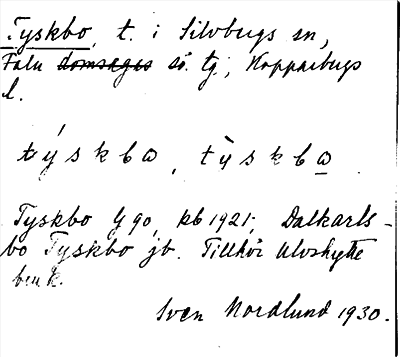 Tyskbo, t. i Silvbergs sn,
Falu domsagas sö. tg; Kopparbergs
l.
týskbω, tỳskbω
Tyskbo Gg 90, kb 1921; Dalkarls-
bo Tyskbo jb. Tillhör Ulvshytte
bruk.
Sven Nordlund 1930.